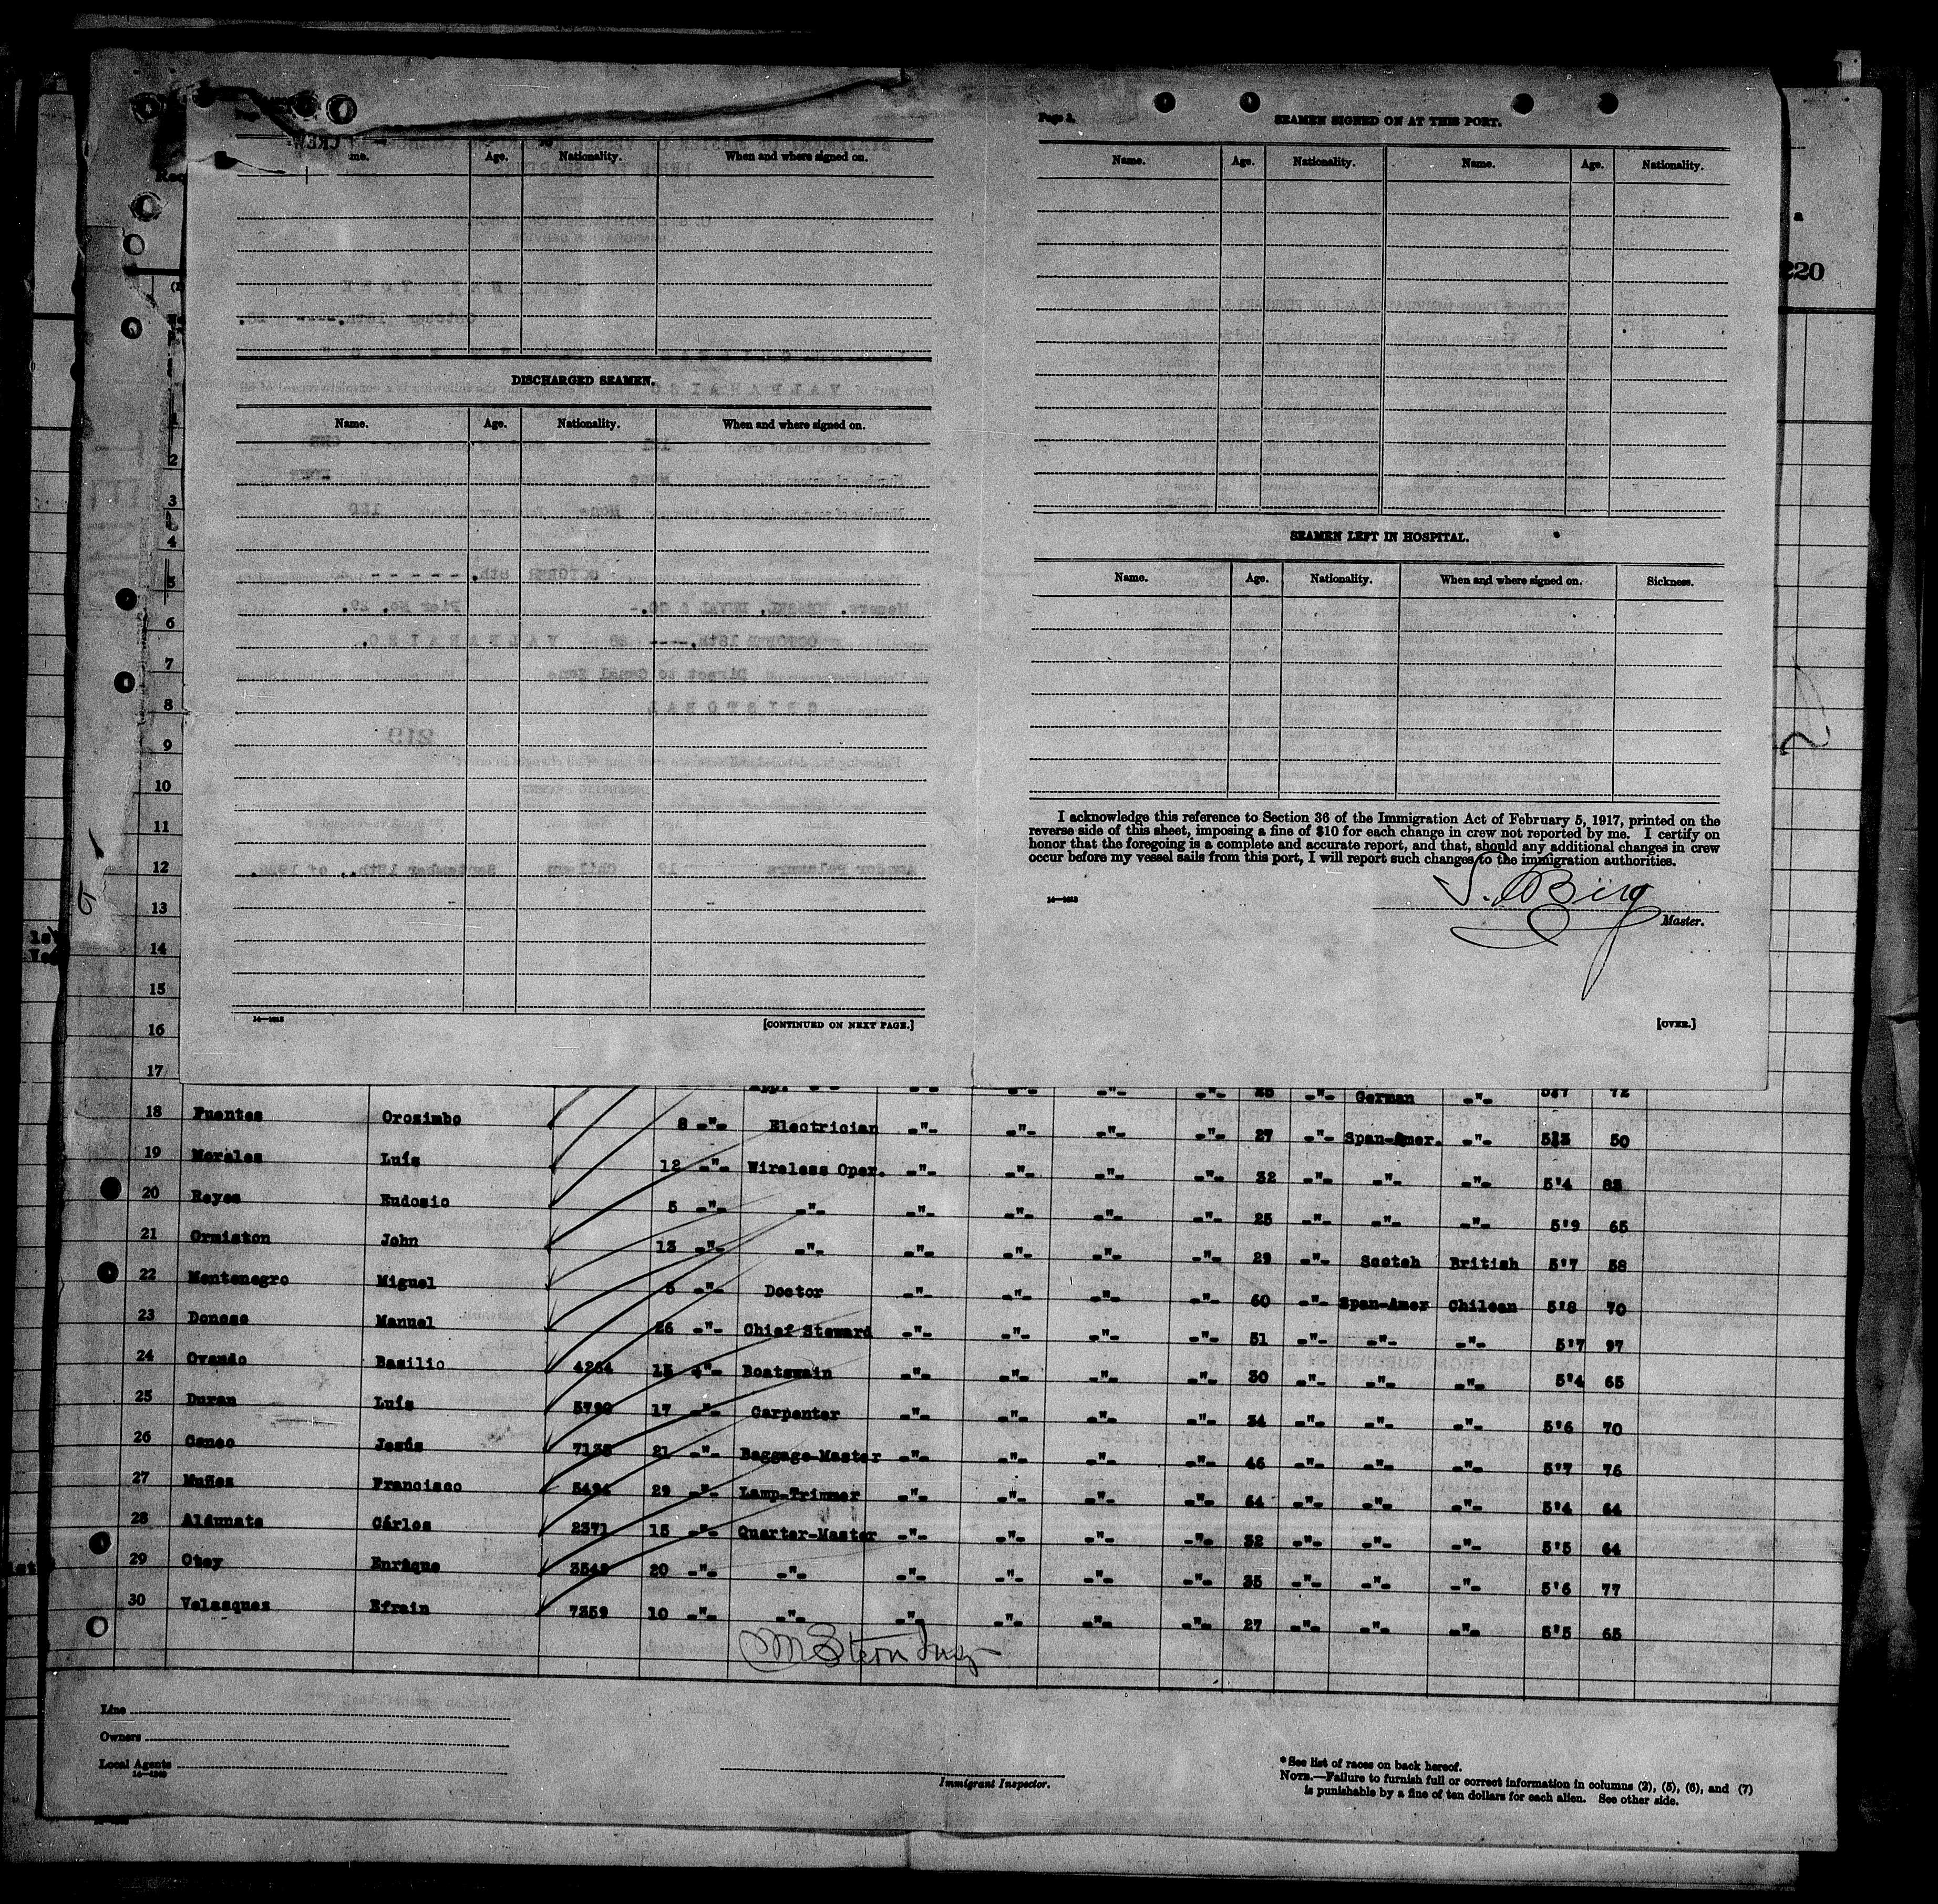 Page 3.
SEAMEN SIGNED ON AT THIS PORT.
me. Age. Nationality. When and where signed on.
Name. Age. Nationality. Name. Age. Nationality.
220
DISCHARGED SEAMEN.
Name. Age. Nationality. When and where signed on.
SEAMEN LEFT IN HOSPITAL.
Name. Age. Nationality. When and where signed on. Sickness.
1
2
3
4
5
6
7
8
9
10
11
12
13
14
15
16
17
I acknowledge this reference to Section 36 of the Immigration Act of February 5, 1917, printed on the
reverse side of this sheet, imposing a fine of $10 for each change in crew not reported by me. I certify on
honor that the foregoing is a complete and accurate report, and that, should any additional changes in crew
occur before my vessel sails from this port, I will report such changes to the immigration authorities.
Master.
[CONTINUED ON NEXT PAGE.]
[OVER.]
German -"- 5'7 72
18 Fuentes Orosimbo 8 -"- Electrician -"- -"- -"- -"- 27 -"- Span-Amer. -"- 50
19 Morales Luís 12 -"- Wireless Oper. -"- -"- -"- -"- 32 -"- -"- -"- 5'4
20 Reyes Eudosio 5 -"- -"- -"- -"- -"- -"- 25 -"- -"- -"- 5'9 65
21 Ormiston John 13 -"- -"- -"- -"- -"- -"- 29 -"- Scotch British 5'7 58
22 Montenegro Miguel -"- Doctor -"- -"- -"- -"- 60 -"- Span-Amer Chilean 5'8 70
23 Donoso Manuel 26 -"- Chief Steward -"- -"- -"- -"- 51 -"- -"- -"- 5'7 97
24 Ovando Basilio 4264 13 -"- Boatswain -"- -"- -"- -"- 30 -"- -"- -"- 5'4 65
25 Duran Luís 17 -"- Carpenter -"- -"- -"- -"- 34 -"- -"- -"- 5'6 70
26 Caneo Jesús 21 -"- Baggage-Master -"- -"- -"- -"- 46 -"- -"- -"- 5'7 76
27 Muñoz Francisco 29 -"- Lamp-Trimmer -"- -"- -"- -"- 64 -"- -"- -"- 5'4 64
28 Aldunate Cárlos 2371 15 -"- Quarter-Master -"- -"- -"- -"- 32 -"- -"- -"- 5'5 64
29 Otey Enrique 20 -"- -"- -"- -"- -"- -"- 35 -"- -"- -"- 5'6 77
30 Velasquez Efrain 7359 10 -"- -"- -"- -"- -"- -"- 27 -"- -"- -"- 5'5 65
Line
Owners
Local Agents
Immigrant Inspector.
*See list of races on back hereof.
NOTE.—Failure to furnish full or correct information in columns (2), (5), (6), and (7)
is punishable by a fine of ten dollars for each alien. See other side.